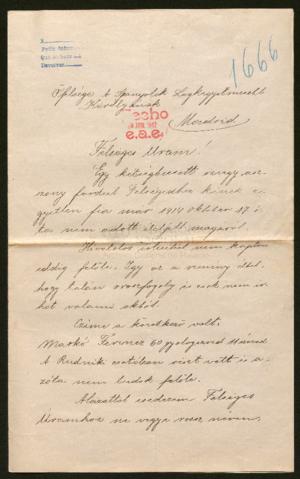 1666
Őfelsége A Spanyolok Legkegyelmesebb
Királyának
Echo
e.a.e.
Madrid
Felséges Uram!
Egy kétségbeesett özvegy asz-
szony fordul Felségedhez kinek e-
gyetlen fia már 1914 október 17 ó-
ta nem adott életjelt magáról.
Hivatalos értesítést nem kaptam
eddig felőle. Így az a remény éltet,
hogy talán oroszfogoly és csak nem ír-
hat valami okból.
Címe a következő volt.
Markó Ferencz 60 gyalogezred
A Rudnik csatában részt vett és a-
zóta nem tudok felőle.
Alázattal esedezem Felséges
Uramhoz ne vegye rossz néven,